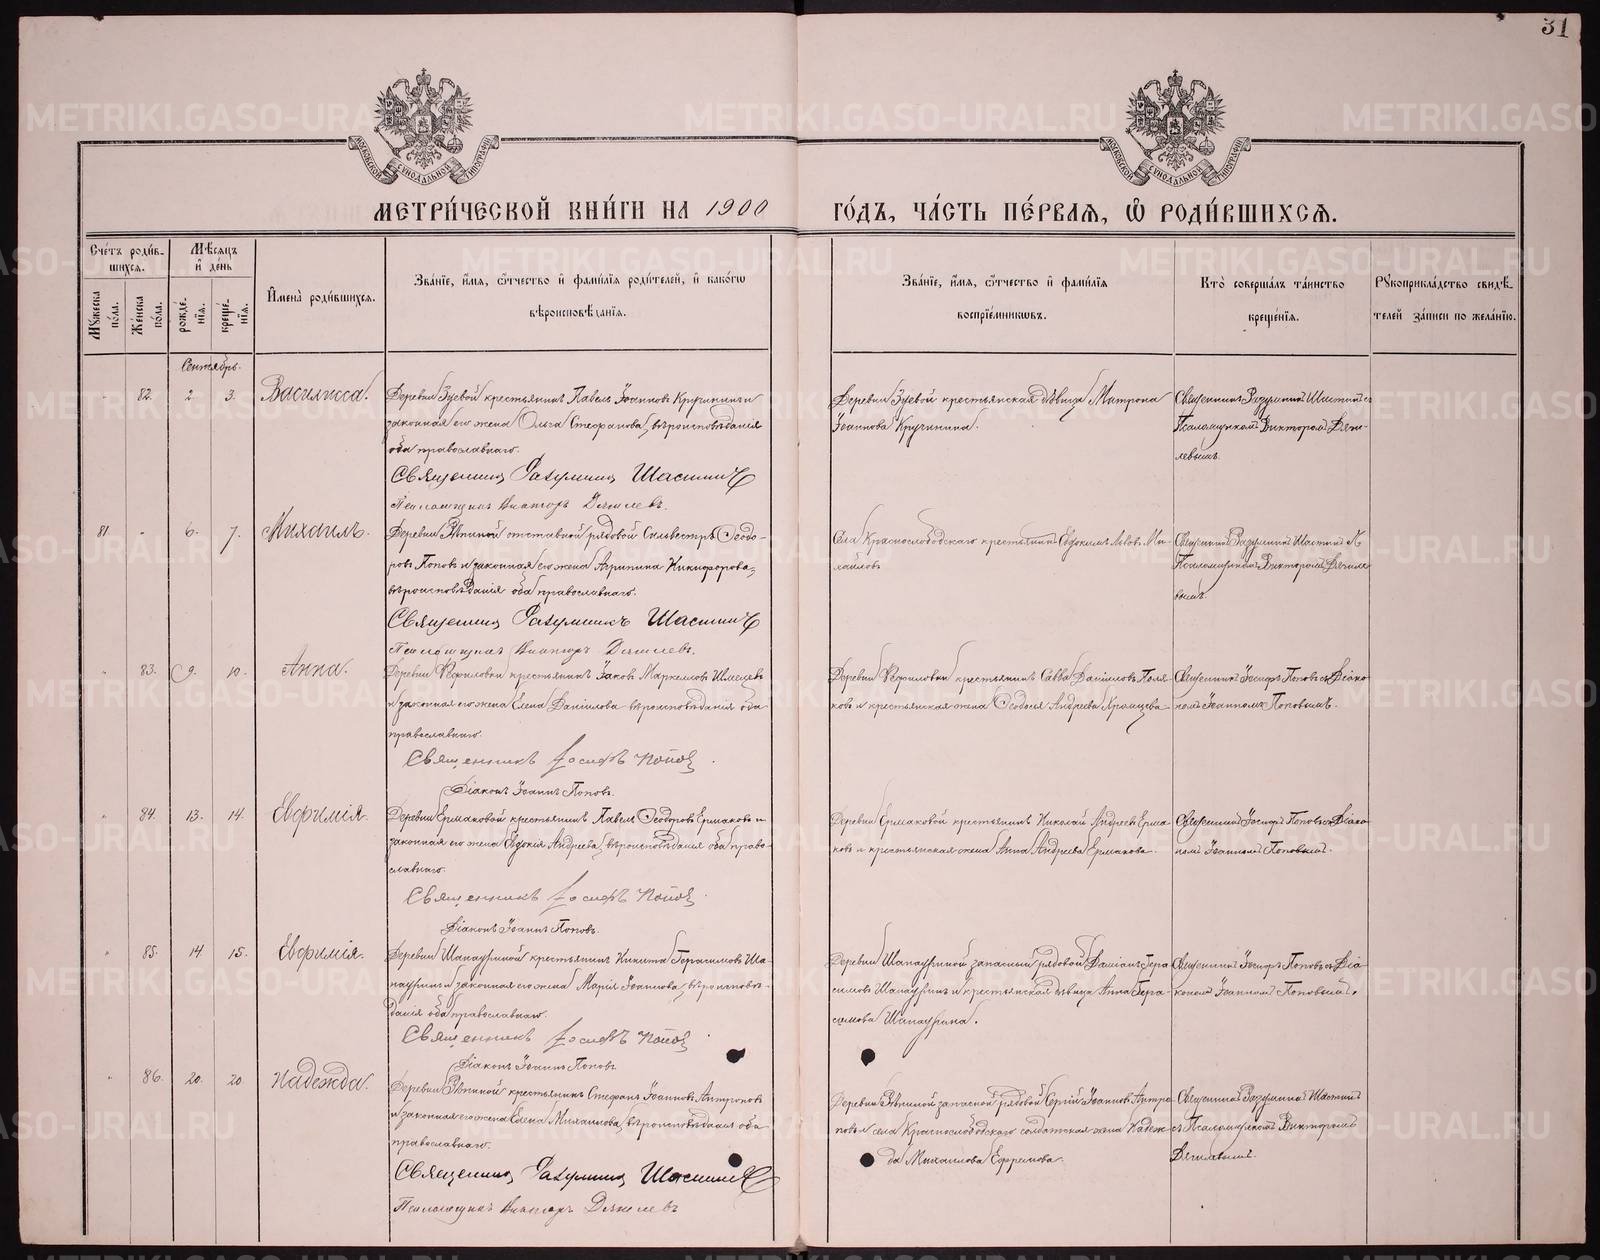 31
МОСКОВСКОЙ СѴНОДАЛЬНОЙ ТИПОГРАФІИ
МОСКОВСКОЙ СѴНОДАЛЬНОЙ ТИПОГРАФІИ
МЕТРИ́ЧЕСКОЙ КНИ́ГИ НА 1900
ГО́ДЪ, ЧА́СТЬ ПЕ́РВАѦ, Ѽ РОДИ́ВШИХСѦ.
Сче́тъ роди́в-
шихсѧ.
Мѣ́сѧцъ
и҆ де́нь
Мꙋ́жеска по́ла.
Же́нска по́ла.
рожде́-
нїѧ.
креще́-
нїѧ.
И҆мена̀ роди́вшихсѧ.
Зва́нїе, и҆́мѧ, ѻ҆́тчество и҆ фами́лїѧ роди́телей, и҆ како́гѡ
вѣроисповѣ́данїѧ.
Зва́нїе, и҆́мѧ, ѻ҆́тчество и҆ фами́лїѧ
воспрїе́мникѡвъ.
Кто̀ соверша́лъ та́инство
креще́нїѧ.
Рꙋкоприкла́дство свидѣ́-
телей за́писи по жела́нїю.
Сентябрь.
82. 2. 3. Василисса.
Деревни Зуевой крестьянинъ Павелъ Іоанновъ Кручининъ и
законная его жена Ольга Стефанова, вѣроисповѣданія
оба православнаго.
Священникъ Разумникъ Шастинъ
Псаломщикъ Викторъ
Деревни Зуевой крестьянская дѣвица Матрона
Іоаннова Кручинина.
Священникъ Разумникъ Шастинъ съ
Псаломщикомъ Викторомъ
81. - 6. 7. Михаилъ.
Деревни Рѣпиной отставной рядовой Сильвестръ Ѳеодо-
ровъ Поповъ и законная его жена Агрипина Никифорова,
вѣроисповѣданія оба православнаго.
Священникъ Разумникъ Шастинъ
Псаломщикъ Викторъ
Села Краснослободскаго крестьянинъ Евдокимъ Львовъ Ми-
хайловъ
Священникъ Разумникъ Шастинъ съ
Псаломщикомъ Викторомъ
83. 9. 10. Анна.
Деревни крестьянинъ Іаковъ Маркеловъ
и законная его жена Елена Даніилова вѣроисповѣданія оба
православнаго.
Священникъ Іосифъ Поповъ.
Діаконъ Іоаннъ Поповъ.
Деревни крестьянинъ Савва Данииловъ Поля-
ковъ и крестьянская жена Ѳеодосья Андреева
Священникъ Іосифъ Поповъ съ Діако-
номъ Іоанномъ Поповымъ.
84. 13. 14. Евфимія.
Деревни Ермаковой крестьянинъ Павелъ Ѳеодоровъ Ермаковъ и
законная его жена Евдокія Андреева, вѣроисповѣданія оба право-
славнаго.
Священникъ Іосифъ Поповъ.
Діаконъ Іоаннъ Поповъ.
Деревни Ермаковой крестьянинъ Николай Андреевъ Ерма-
ковъ и крестьянская жена Анна Андреева Ермакова
Священникъ Іосифъ Поповъ съ Діако-
номъ Іоанномъ Поповымъ.
85. 14. 15. Евфимія.
Деревни Шапауриной крестьянинъ Никита Герасимовъ Ша-
пауринъ и законная его жена Марія Іоаннова, вѣроисповѣ-
данія оба православнаго.
Священникъ Іосифъ Поповъ
Діаконъ Іоаннъ Поповъ
Деревни Шапауриной запасный рядовой Даміанъ Гера-
симовъ Шапауринъ и крестьянская дѣвица Анна Гера-
симова Шапаурина.
Священникъ Іосифъ Поповъ съ Діа-
кономъ Іоанномъ Поповымъ.
86. 20. 20 Надежда.
Деревни Рѣпиной крестьянинъ Стефанъ Іоанновъ Антроповъ
и законная его жена Елена Михаилова, вѣроисповѣданія оба
православнаго.
Священникъ Разумникъ Шастинъ
Псаломщикъ Викторъ
Деревни Рѣпиной запасной рядовой Сергій Іоанновъ Антро-
повъ и села Краснослободскаго солдатская жена Надеж-
да Михаилова Ефремова.
Священникъ Разумникъ Шастинъ
съ Псаломщикомъ Викторомъ
METRIKI.GASO-URAL.RU